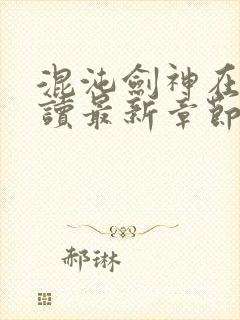 混沌劍神在
讀最新章節
郝琳